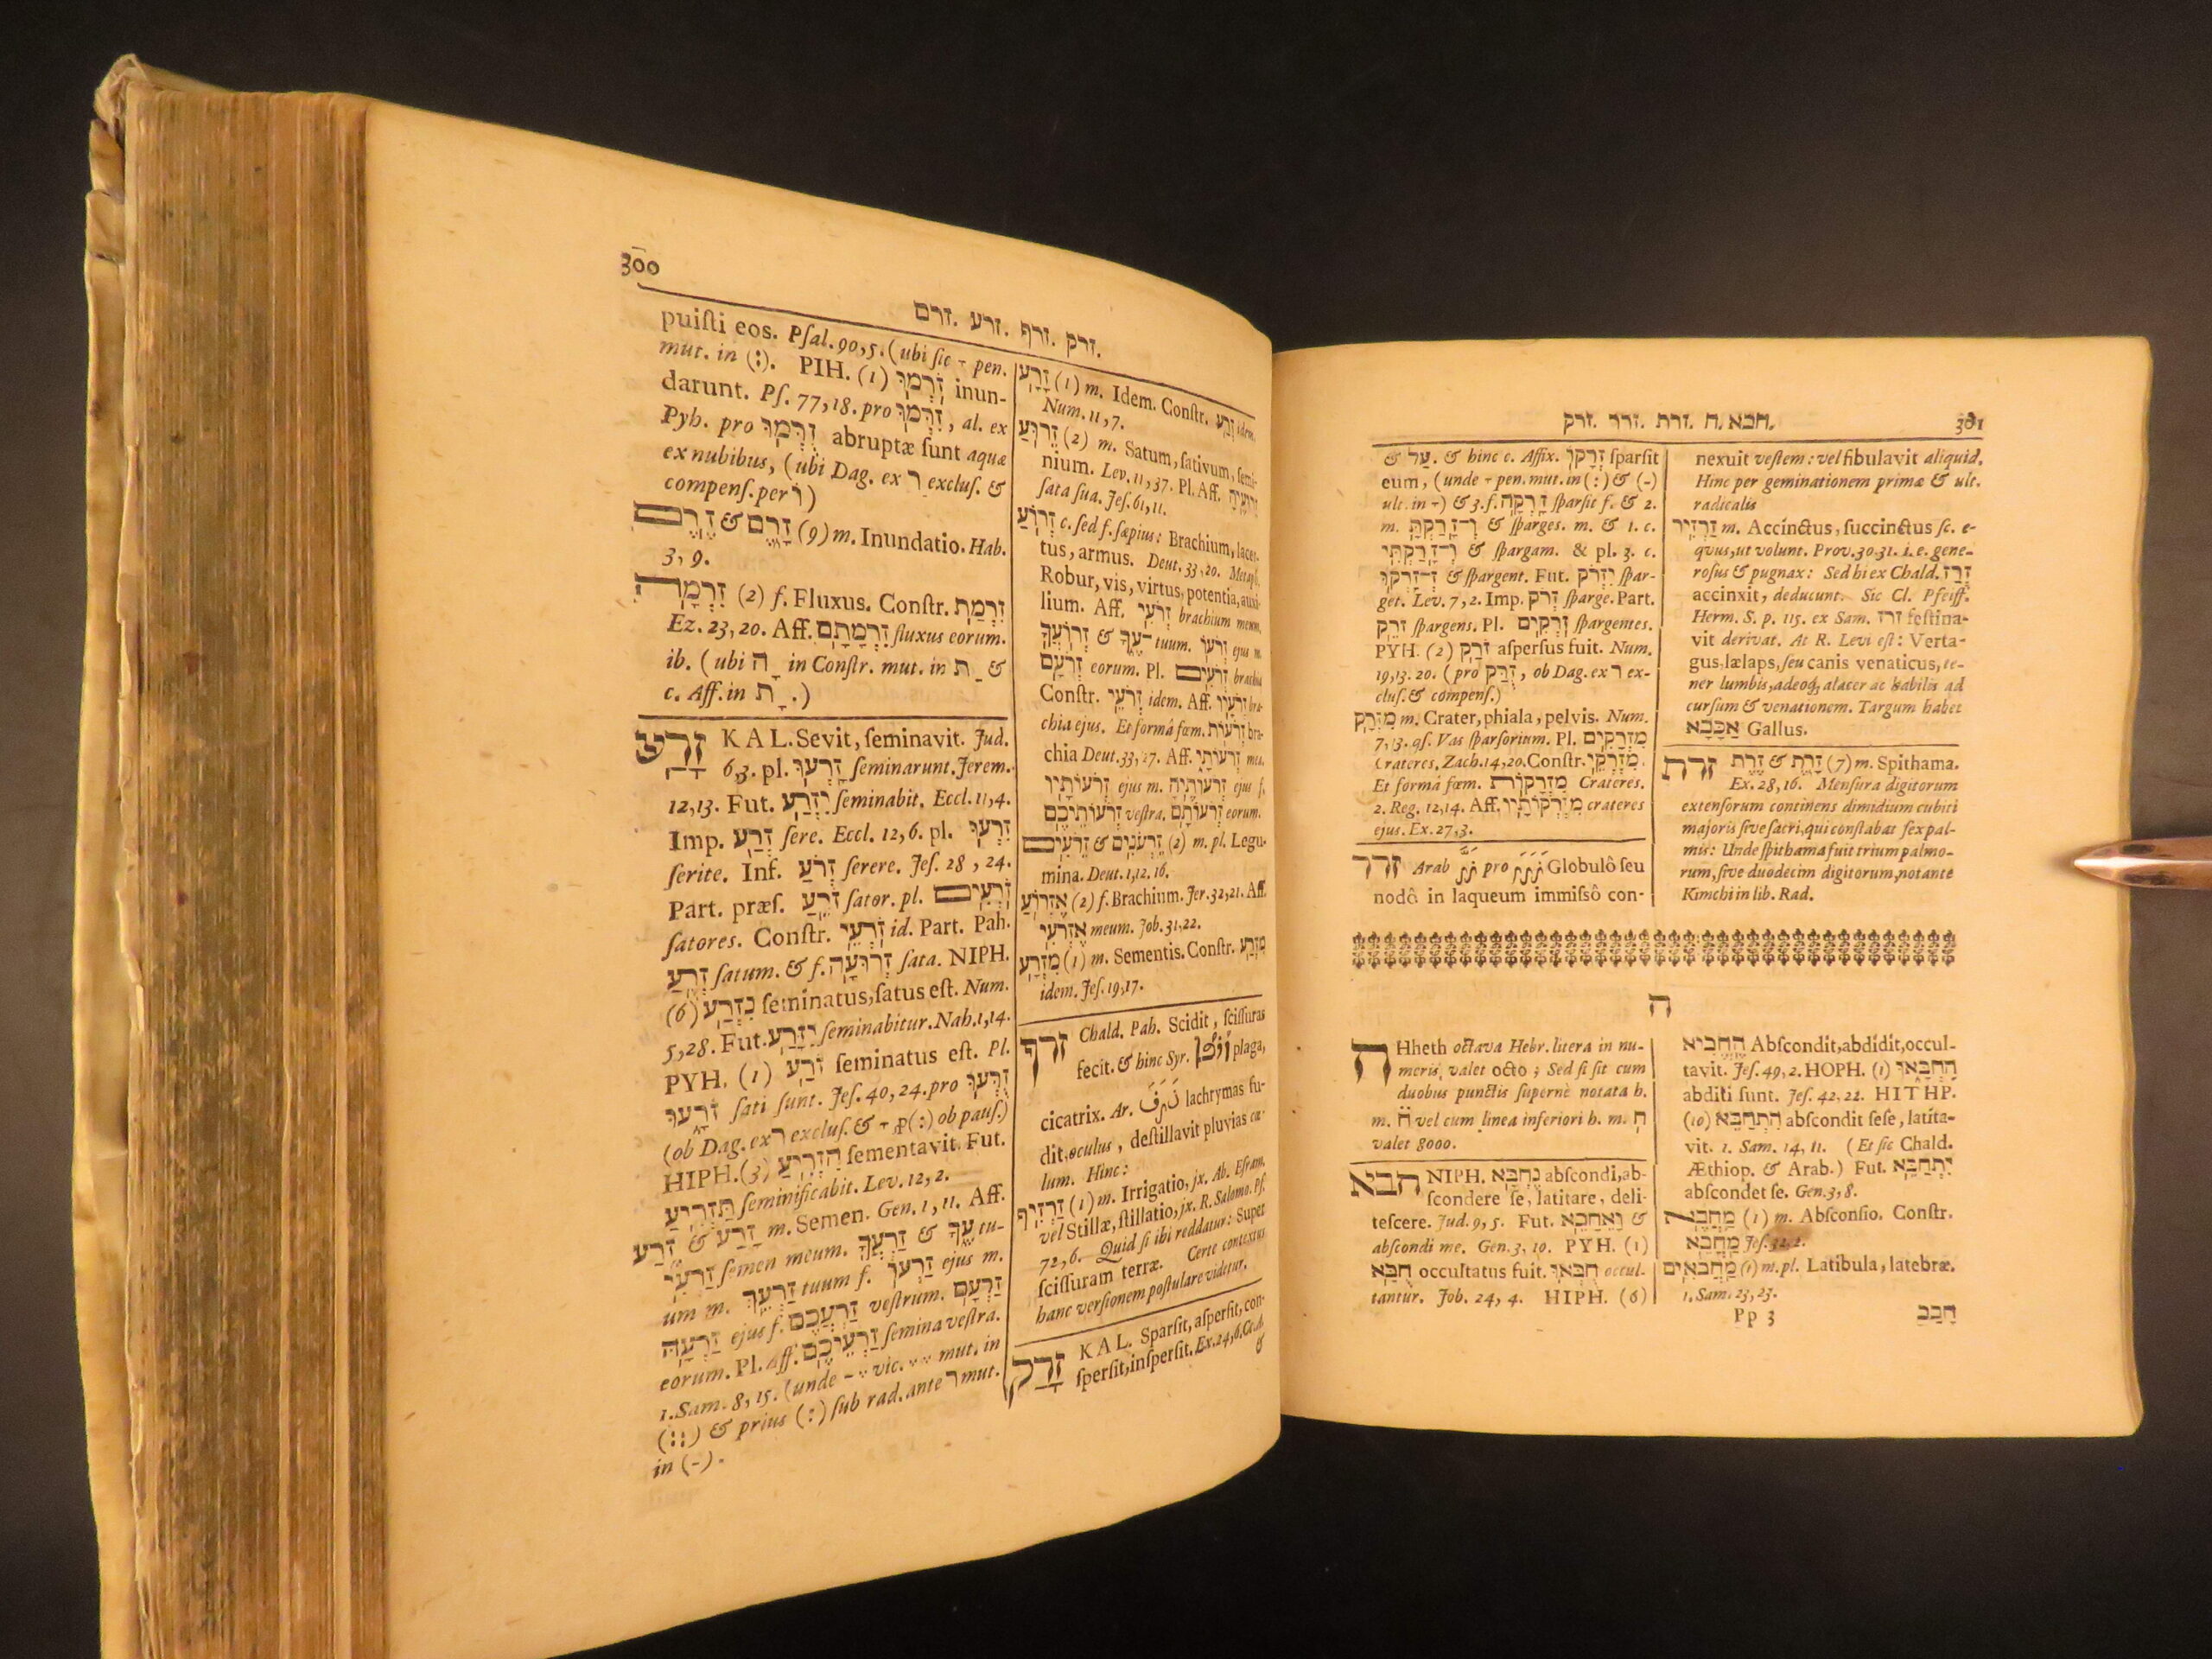 300
זרק. זרף. זרע. זרם
puiſti eos. Pſal. 90, 5. (ubi ſic - pen.
mut. in (:). PIH. (1) זֹרְמוּ inun-
darunt. Pſ. 77, 18. pro זֹרְמוּ, al. ex
Pyh. pro זֹרְמוּ abruptæ ſunt aquæ
ex nubibus, (ubi Dag. ex ר excluſ. &
compenſ. per
זֶרֶם & זָרֶם (9) m. Inundatio. Hab.
3, 9.
זִרְמָה (2) f. Fluxus. Conſtr. זִרְמַת
Ez. 23, 20. Aff. זִרְמָתָם fluxus eorum.
ib. (ubi ה in Conſtr. mut. in ת &
c. Aff. in ת.)
זָרַע KAL. Sevit, ſeminavit. Jud.
6, 3. pl. זָרְעוּ ſeminarunt. Jerem.
12, 13. Fut. יִזְרַע ſeminabit. Eccl. 11, 4.
Imp. זְרַע ſere. Eccl. 12, 6. pl. זִרְעוּ
ſerite. Inf. זְרֹעַ ſerere. Jeſ. 28, 24.
Part. præſ. זֹרֵעַ ſator. pl. זֹרְעִים
ſatores. Conſtr. זֹרְעֵי id. Part. Pah.
זָרֻעַ ſatum. & f. זְרוּעָה ſata. NIPH.
(6) נִזְרַע ſeminatus, ſatus eſt. Num.
5, 28. Fut. יִזָּרַע ſeminabitur. Nah. 1, 14.
PYH. (1) זֹרַע ſeminatus eſt. Pl.
זֹרָעוּ ſati ſunt. Jeſ. 40, 24. pro זֹרְעוּ
(ob Dag. ex ר excluſ. & - p (:) ob pauſ.)
HIPH. (3) הִזְרִיעַ ſementavit. Fut.
תַּזְרִיעַ ſeminificabit. Lev. 12, 2.
זֶרַע & זָרַע m. Semen. Gen. 1, 11. Aff.
זַרְעִי ſemen meum. זַרְעֲךָ & עֶךָ tu-
um m. זַרְעֵךְ tuum f. זַרְעוֹ ejus m.
זַרְעָהּ ejus f. זַרְעֲכֶם veſtrum. זַרְעָם
eorum. Pl. Aff. זַרְעֵיכֶם ſemina veſtra.
1. Sam. 8, 15. (unde vic. mut. in
& prius (:) ſub rad. ante ר mut.
in (-).
זְרַע (1) m. Idem. Conſtr. זְרַע idem.
Num. 11, 7.
זֵרוּעַ (2) m. Satum, ſativum, ſemi-
nium. Lev. 11, 37. Pl. Aff. זֵרוּעֶיהָ
ſata ſua. Jeſ. 61, 11.
זְרוֹעַ c. ſed f. ſæpius: Brachium, lacer-
tus, armus. Deut. 33, 20. Metaph.
Robur, vis, virtus, potentia, auxi-
lium. Aff. זְרֹעִי brachium meum,
זְרֹעֲךָ & עֶךָ tuum. זְרֹעוֹ ejus m.
זְרֹעָם eorum. Pl. זְרֹעִים brachia
Conſtr. זְרֹעֵי idem. Aff. זְרֹעָיו bra-
chia ejus. Et formâ fœm. זְרֹעוֹת bra-
chia Deut. 33, 27. Aff. זְרֹעוֹתַי mea.
זְרֹעוֹתָיו ejus m. זְרֹעוֹתֶיהָ ejus f.
זְרֹעוֹתֵיכֶם veſtra. זְרֹעוֹתָם eorum.
זֵרֹעִים & זֵרְעֹנִים (2) m. pl. Legu-
mina. Deut. 1, 12. 16.
אֶזְרוֹעַ (2) f. Brachium. Jer. 32, 21. Aff.
אֶזְרֹעִי meum. Job. 31, 22.
מִזְרָע (1) m. Sementis. Conſtr. מִזְרַע
idem. Jeſ. 19, 17.
זרף Chald. Pah. Scidit, ſciſſuras
fecit. & hinc Syr. plaga,
cicatrix. Ar. lachrymas fu-
dit, oculus, deſtillavit pluvias cœ-
lum. Hinc:
זַרְזִיף (1) m. Irrigatio, jx. Ab. Eſram,
vel Stillæ, ſtillatio, jx. R. Salomo. Pſ.
72, 6. Quid ſi ibi reddatur: Super
ſciſſuram terræ. Certe contextus
hanc verſionem poſtulare videtur.
זָרַק KAL. Sparſit, aſperſit, con-
ſperſit, inſperſit. Ex. 24, 6.
&
חבא. ח. זרת. זרר. זרק
301
& עַל. & hinc c. Affix. זְרָקוֹ ſparſit
eum, (unde - pen. mut. in (:) & (-)
ult. in -) & 3. f. זָרְקָה ſparſit f. & 2.
m. וְזָרַקְתָּ & ſparges. m. & 1. c.
וְזָרַקְתִּי & ſpargam. & pl. 3. c.
וְזָרְקוּ & ſpargent. Fut. יִזְרֹק ſpar-
get. Lev. 7, 2. Imp. זְרֹק ſparge. Part.
זֹרֵק ſpargens. Pl. זֹרְקִים ſpargentes.
PYH. (2) זֹרַק aſperſus fuit. Num.
19, 13. 20. (pro זֻרַּק, ob Dag. ex ר ex-
cluſ. & compenſ.)
מִזְרָק m. Crater, phiala, pelvis. Num.
7, 13. qſ. Vas ſparſorium. Pl. מִזְרָקִים
Crateres. Zach. 14, 20. Conſtr. מִזְרְקֵי.
Et formâ fœm. מִזְרָקוֹת Crateres.
2. Reg. 12, 14. Aff. מִזְרְקוֹתָיו crateres
ejus. Ex. 27, 3.
זרר Arab pro Globulô ſeu
nodô in laqueum immiſsô con-
nexuit veſtem: vel fibulavit aliquid.
Hinc per geminationem primæ & ult.
radicalis
זַרְזִיר m. Accinctus, ſuccinctus ſc. e-
qvus, ut volunt. Prov. 30. 31. i. e. gene-
roſus & pugnax: Sed hi ex Chald. זְרַז
accinxit, deducunt. Sic Cl. Pfeiff.
Herm. S. p. 115. ex Sam. זרז feſtina-
vit derivat. At R. Levi eſt: Verta-
gus, lælaps, ſeu canis venaticus, te-
ner lumbis, adeoq; alacer ac habilis ad
curſum & venationem. Targum habet
אַבָּכָא Gallus.
זרת זָרֶת & זֶרֶת (7) m. Spithama.
Ex. 28, 16. Menſura digitorum
extenſorum continens dimidium cubiti
majoris ſive ſacri, qui conſtabat ſex pal-
mis: Unde ſpithama fuit trium palmo-
rum, ſive duodecim digitorum, notante
Kimchi in lib. Rad.
ח
ח Hheth octava Hebr. litera in nu-
meris, valet octo; Sed ſi ſit cum
duobus punctis ſupernè notata h.
m. ח̈ vel cum linea inferiori h. m. ח
valet 8000.
חבא NIPH. נֶחְבָּא abſcondi, ab-
ſcondere ſe, latitare, deli-
teſcere. Jud. 9, 5. Fut. וָאֵחָבֵא &
abſcondi me. Gen. 3, 10. PYH. (1)
חֻבָּא occultatus fuit. חֻבְּאוּ occul-
tantur. Job. 24, 4. HIPH. (6)
הֶחְבִּיא Abſcondit, abdidit, occul-
tavit. Jeſ. 49, 2. HOPH. (1) הָחְבְּאוּ
abditi ſunt. Jeſ. 42, 22. HITHP.
(10) הִתְחַבֵּא abſcondit ſeſe, latita-
vit. 1. Sam. 14, 11. (Et ſic Chald.
Æthiop. & Arab.) Fut. יִתְחַבֵּא
abſcondet ſe. Gen. 3, 8.
מַחֲבֵא (1) m. Abſconſio. Conſtr.
מַחֲבֵא Jeſ. 32, 2.
מַחֲבֹאִים (1) m. pl. Latibula, latebræ.
1. Sam. 23, 23.
Pp 3
חָבַב